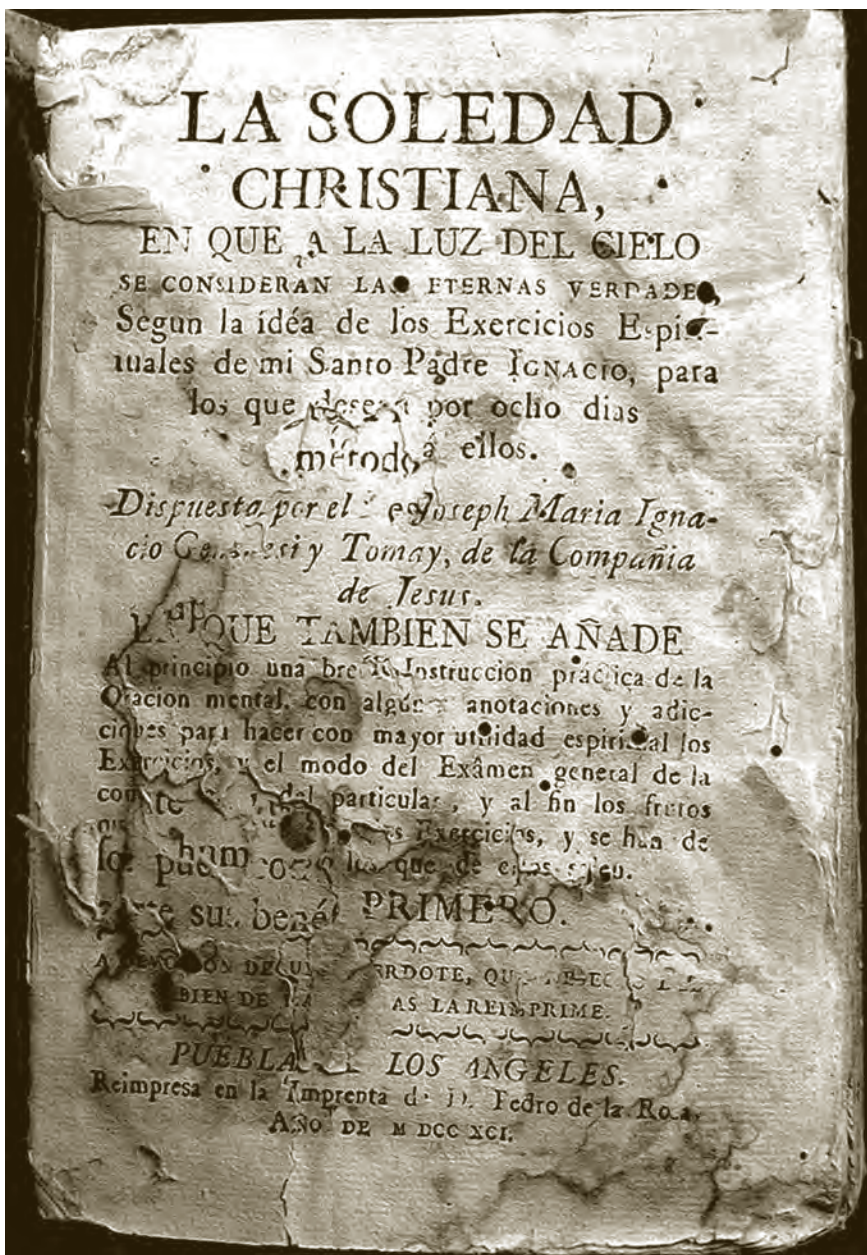 LA SOLEDAD
CHRISTIANA,
EN QUE A LA LUZ DEL CIELO
SE CONSIDERAN LAS ETERNAS VERDADES,
Segun la idéa de los Exercicios Espiri-
tuales de mi Santo Padre IGNACIO, para
los que desean por ocho dias
metodo á ellos.
Dispuesta por el Joseph Maria Igna-
cio y Tomay, de la Compañia
de Jesus.
EN QUE TAMBIEN SE AÑADE
Al principio una breve Instruccion práctica de la
Oracion mental, con algunas anotaciones y adic-
ciones para hacer con mayor utilidad espiritual los
Exercicios, y el modo del Exâmen general de la
del particular, y al fin los frutos
Exercicios, y se han de
los que de ellos salen.
sus PRIMERO.
A DEVOCION DE UN SACERDOTE, QUE
BIEN DE LAS REIMPRIME.
PUEBLA DE LOS ANGELES.
Reimpresa en la Imprenta de D. Pedro de la Rosa.
AÑO DE M DCC XCI.